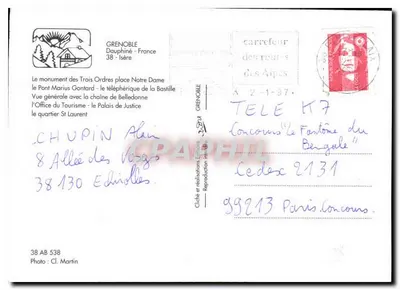 GRENOBLE
Dauphiné - France
38 - Isère
Le monument des Trois Ordres place Notre Dame
le Pont Marius Gontard - le téléphérique de la Bastille
Vue générale avec la chaîne de Belledonne
l'Office du Tourisme - le Palais de Justice
le quartier St Laurent
CHUPIN Alain
8 Allée des Vosges
38130 Echirolles
38 AB 538
Photo : Cl. Martin
GRENOBLE
Cliché et
Reproduction
carrefour
des Alpes
2-1-97
TELE K7
Concours "le Fantôme du
Bengale"
Cedex 2131
99213 Paris Concours
CPAPHIL